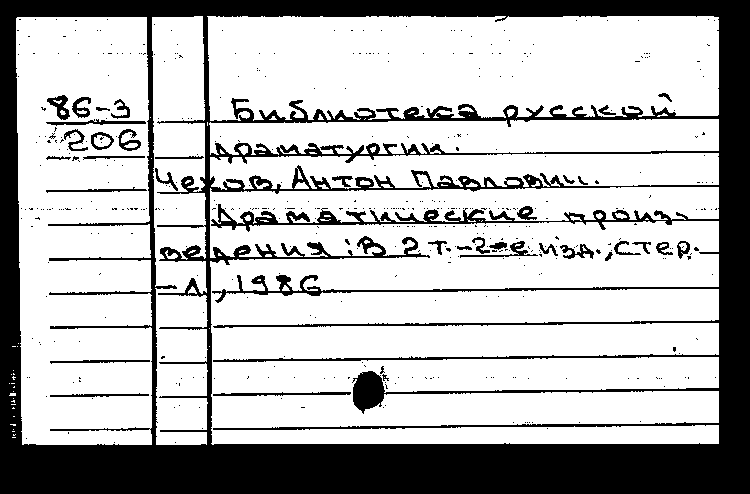 86-3
206
Библиотека русской
драматургии.
Чехов, Антон Павлович.
Драматические произ-
ведения: В 2 т.-2-е изд., стер.
-Л., 1986